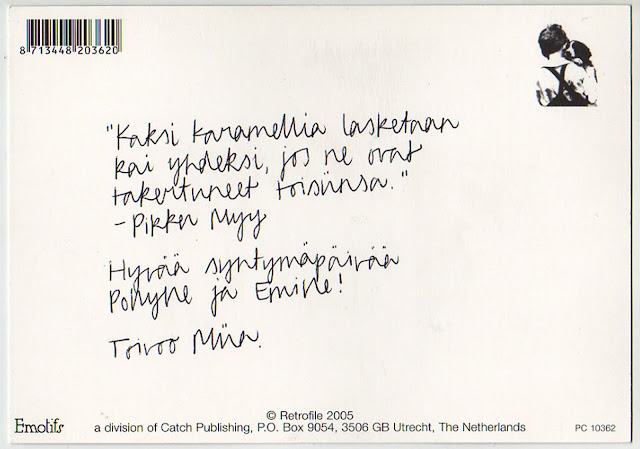 8 713448 203620
"Kaksi karamellia lasketaan
kai yhdeksi, jos ne ovat
takertuneet toisiinsa."
- Pikku Myy
Hyvää syntymäpäivää
ja
Toivoo Miia.
© Retrofile 2005
Emotifs
a division of Catch Publishing, P.O. Box 9054, 3506 GB Utrecht, The Netherlands
PC 10362